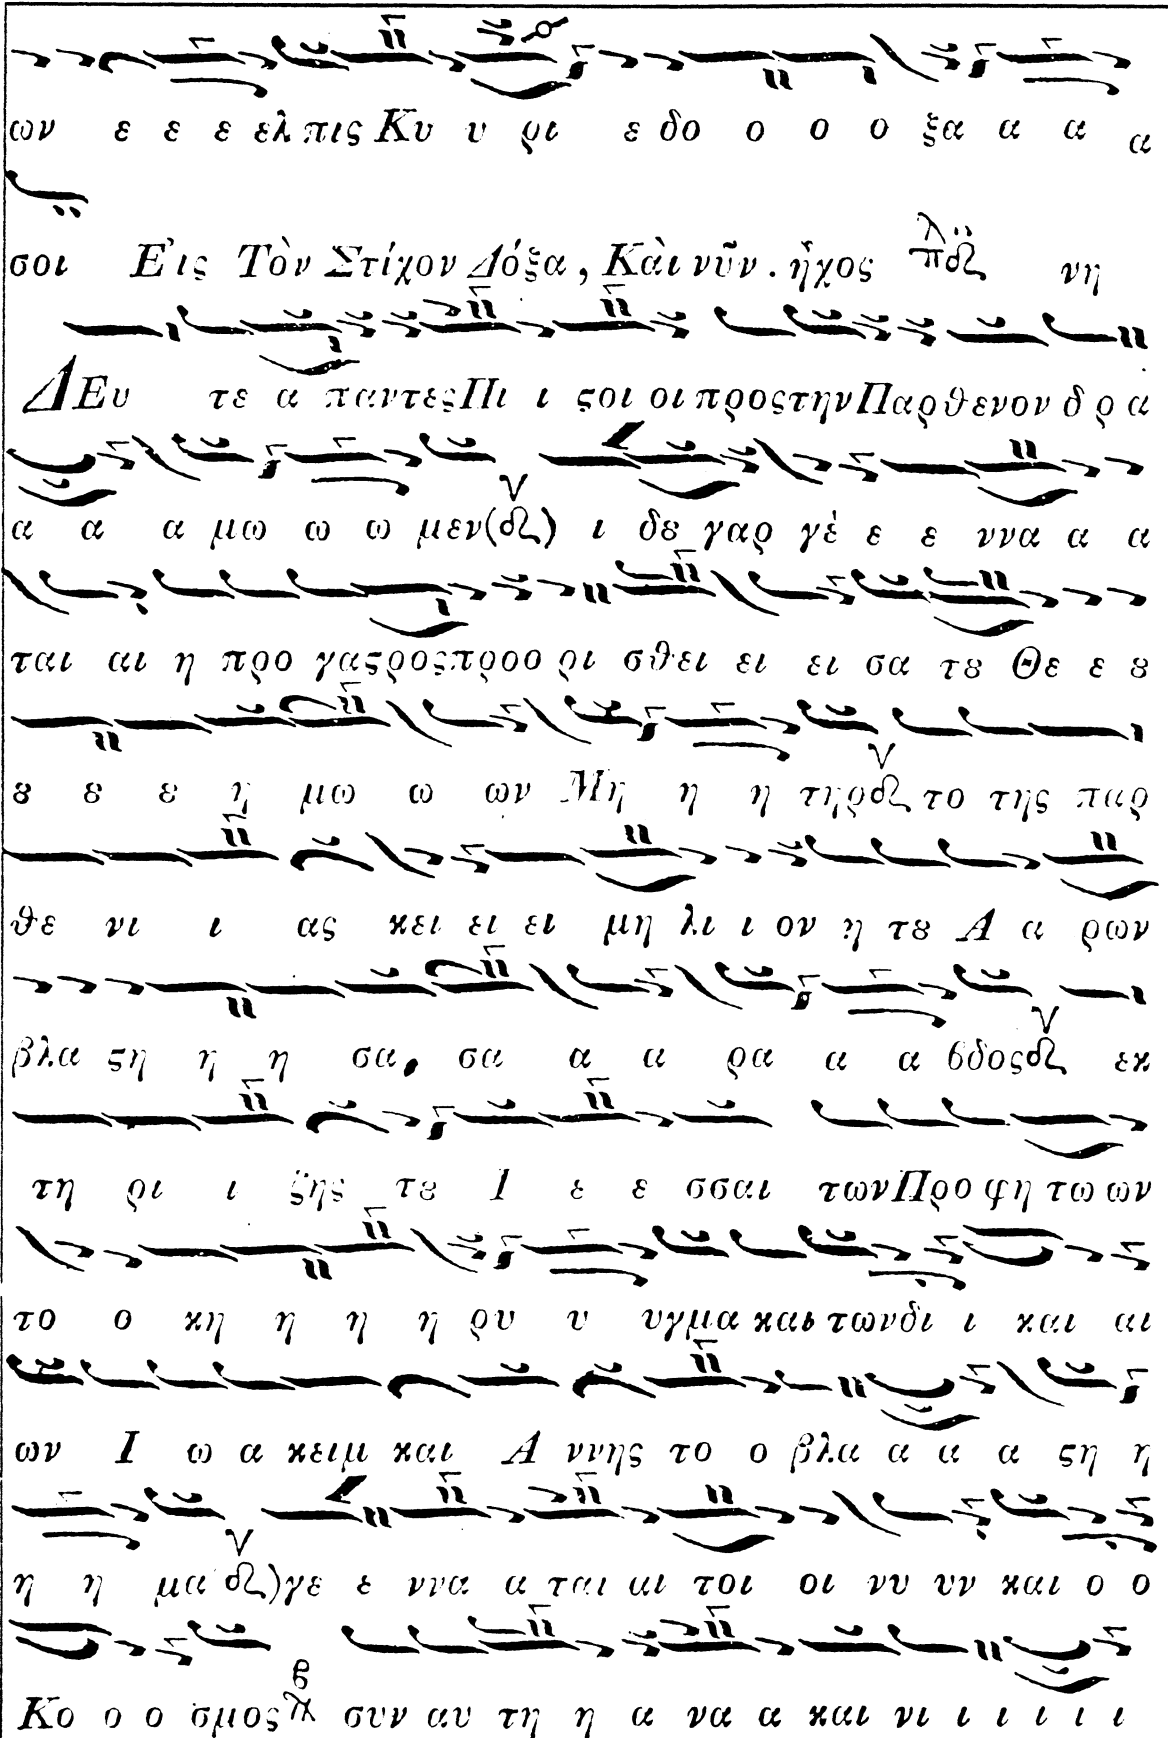 ων ε ε ε ελ πις Κυ υ ρι ε δο ο ο ο ξα α α α
σοι Ε'ις Τὸν Στίχον Δόξα, Κὰι νῦν. ἦχος νη
ΔΕυ τε α παντες Πι ι ςοι οι προς την Παρθενον δ ρ α
α α α μω ω ω μεν ( ) ι δȣ γαρ γὲ ε ε ννα α α
ται αι η προ γαςρος προο ρι σθει ει ει σα τȣ Θε ε ȣ
ȣ ȣ ε η μω ω ων Μη η η τηρ το της παρ
θε νι ι ας κει ει ει μη λι ι ον η τȣ Α α ρων
βλα ςη η η σα, σα α α ρα α α βδος εκ
τη ρι ι ζης τȣ Ι ε ε σσαι των Προ φη τω ων
το ο κη η η η ρυ υ υγμα και των δι ι και αι
ων Ι ω α κειμ και Α ννης το ο βλα α α α ςη η
η η μα ) γε ε ννα α ται αι τοι οι νυ υν και ο ο
Κο ο ο σμος συν αυ τη η α να α και νι ι ι ι ι ι